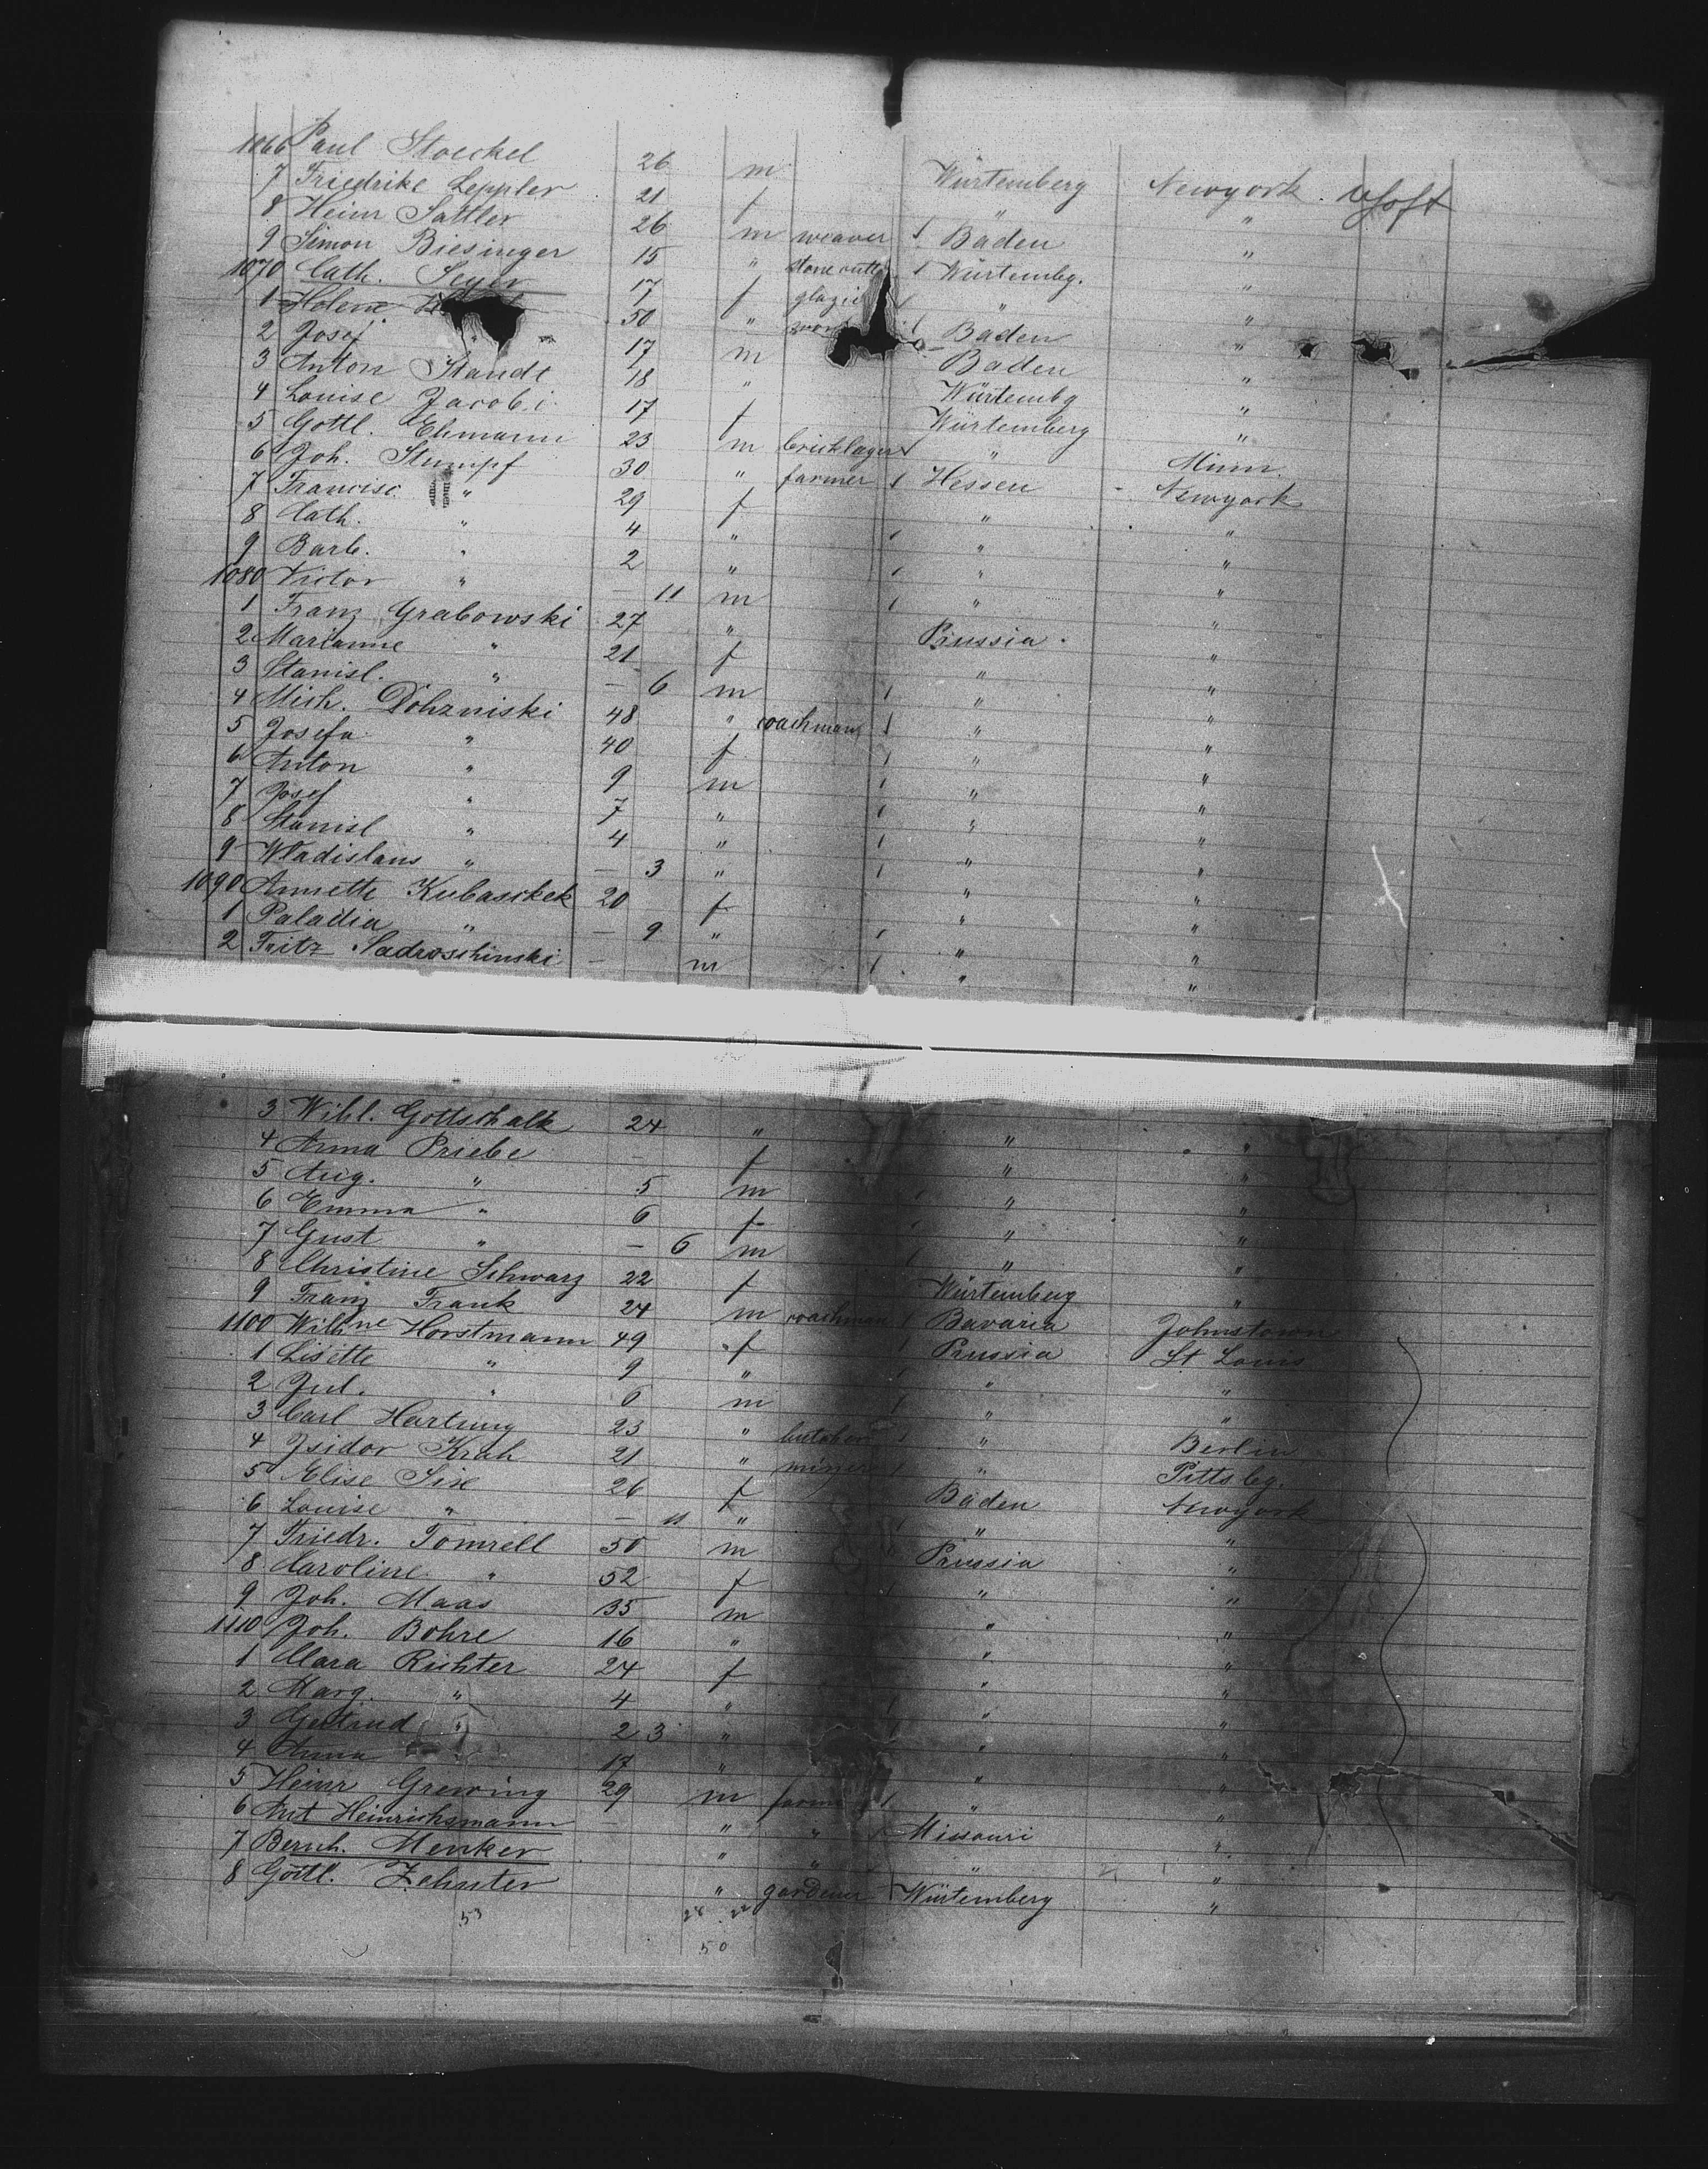 1066 Paul Stoeckel 26 m Würtemberg Newyork
7 Friedrike Leppler 21 f " "
8 Heinr Sattler 26 m weaver 1 Baden "
9 Simon Biesinger 15 " stone cutter 1 Würtembg. "
1070 Cath. Seyer 17 f glazier " "
1 Helene 50 " Baden "
2 Josef " 17 m Baden "
3 Anton Staude 18 " Würtembg "
4 Louise Jacobi 17 f Würtemberg "
5 Gottl. Ehmann 23 m bricklayer 1 " Minn.
6 Joh. Stumpf 30 " farmer 1 Hessen Newyork
7 Francisc " 29 f " "
8 Cath. " 4 " " "
9 Barb. " 2 " " "
1080 Victor " — 11 m " "
1 Franz Grabowski 27 " Prussia "
2 Marianne " 21 f " "
3 Stanisl. " — 6 m " "
4 Mich. Dohzniski 48 " coachman 1 " "
5 Josefa " 40 f " "
6 Anton " 9 m " "
7 Josef " 7 " " "
8 Stanisl " 4 " " "
9 Wladislaus " — 3 " " "
1090 Annette Kubaschek 20 f " "
1 Paladia " — 9 " " "
2 Fritz Sadroschinski — m " "
3 Wilh. Gottschalk 24 " " "
4 Anna Priebe — f " "
5 Aug. " 5 m " "
6 Emma " 6 f " "
7 Gust " — 6 m " "
8 Christine Schwarz 22 f Würtemberg "
9 Franz Frank 24 m coachman 1 Bavaria Johnstown
1100 Wilhne Horstmann 49 f Prussia St Louis
1 Lisette " 9 " " "
2 Jul. " 6 m " "
3 Carl Hartung 23 " butcher " Berlin
4 Isidor Krah 21 " miner " Pittsbg.
5 Elise Sixe 26 f Baden Newyork
6 Louise " — 11 " " "
7 Friedr. Tomrell 50 m Prussia "
8 Caroline " 52 f " "
9 Joh. Maas 35 m " "
1110 Joh. Bohre 16 " " "
1 Clara Richter 24 f " "
2 Marg. " 4 " " "
3 Gertrud " 2 3 " " "
4 Anna 17 " " "
5 Heinr Grewing 29 m farmer 1 " "
6 Ant Heinrichsmann — " " Missouri "
7 Bernh. Menker " " " "
8 Gottl. Zehnter " gardener Würtemberg "
53 28 22
50